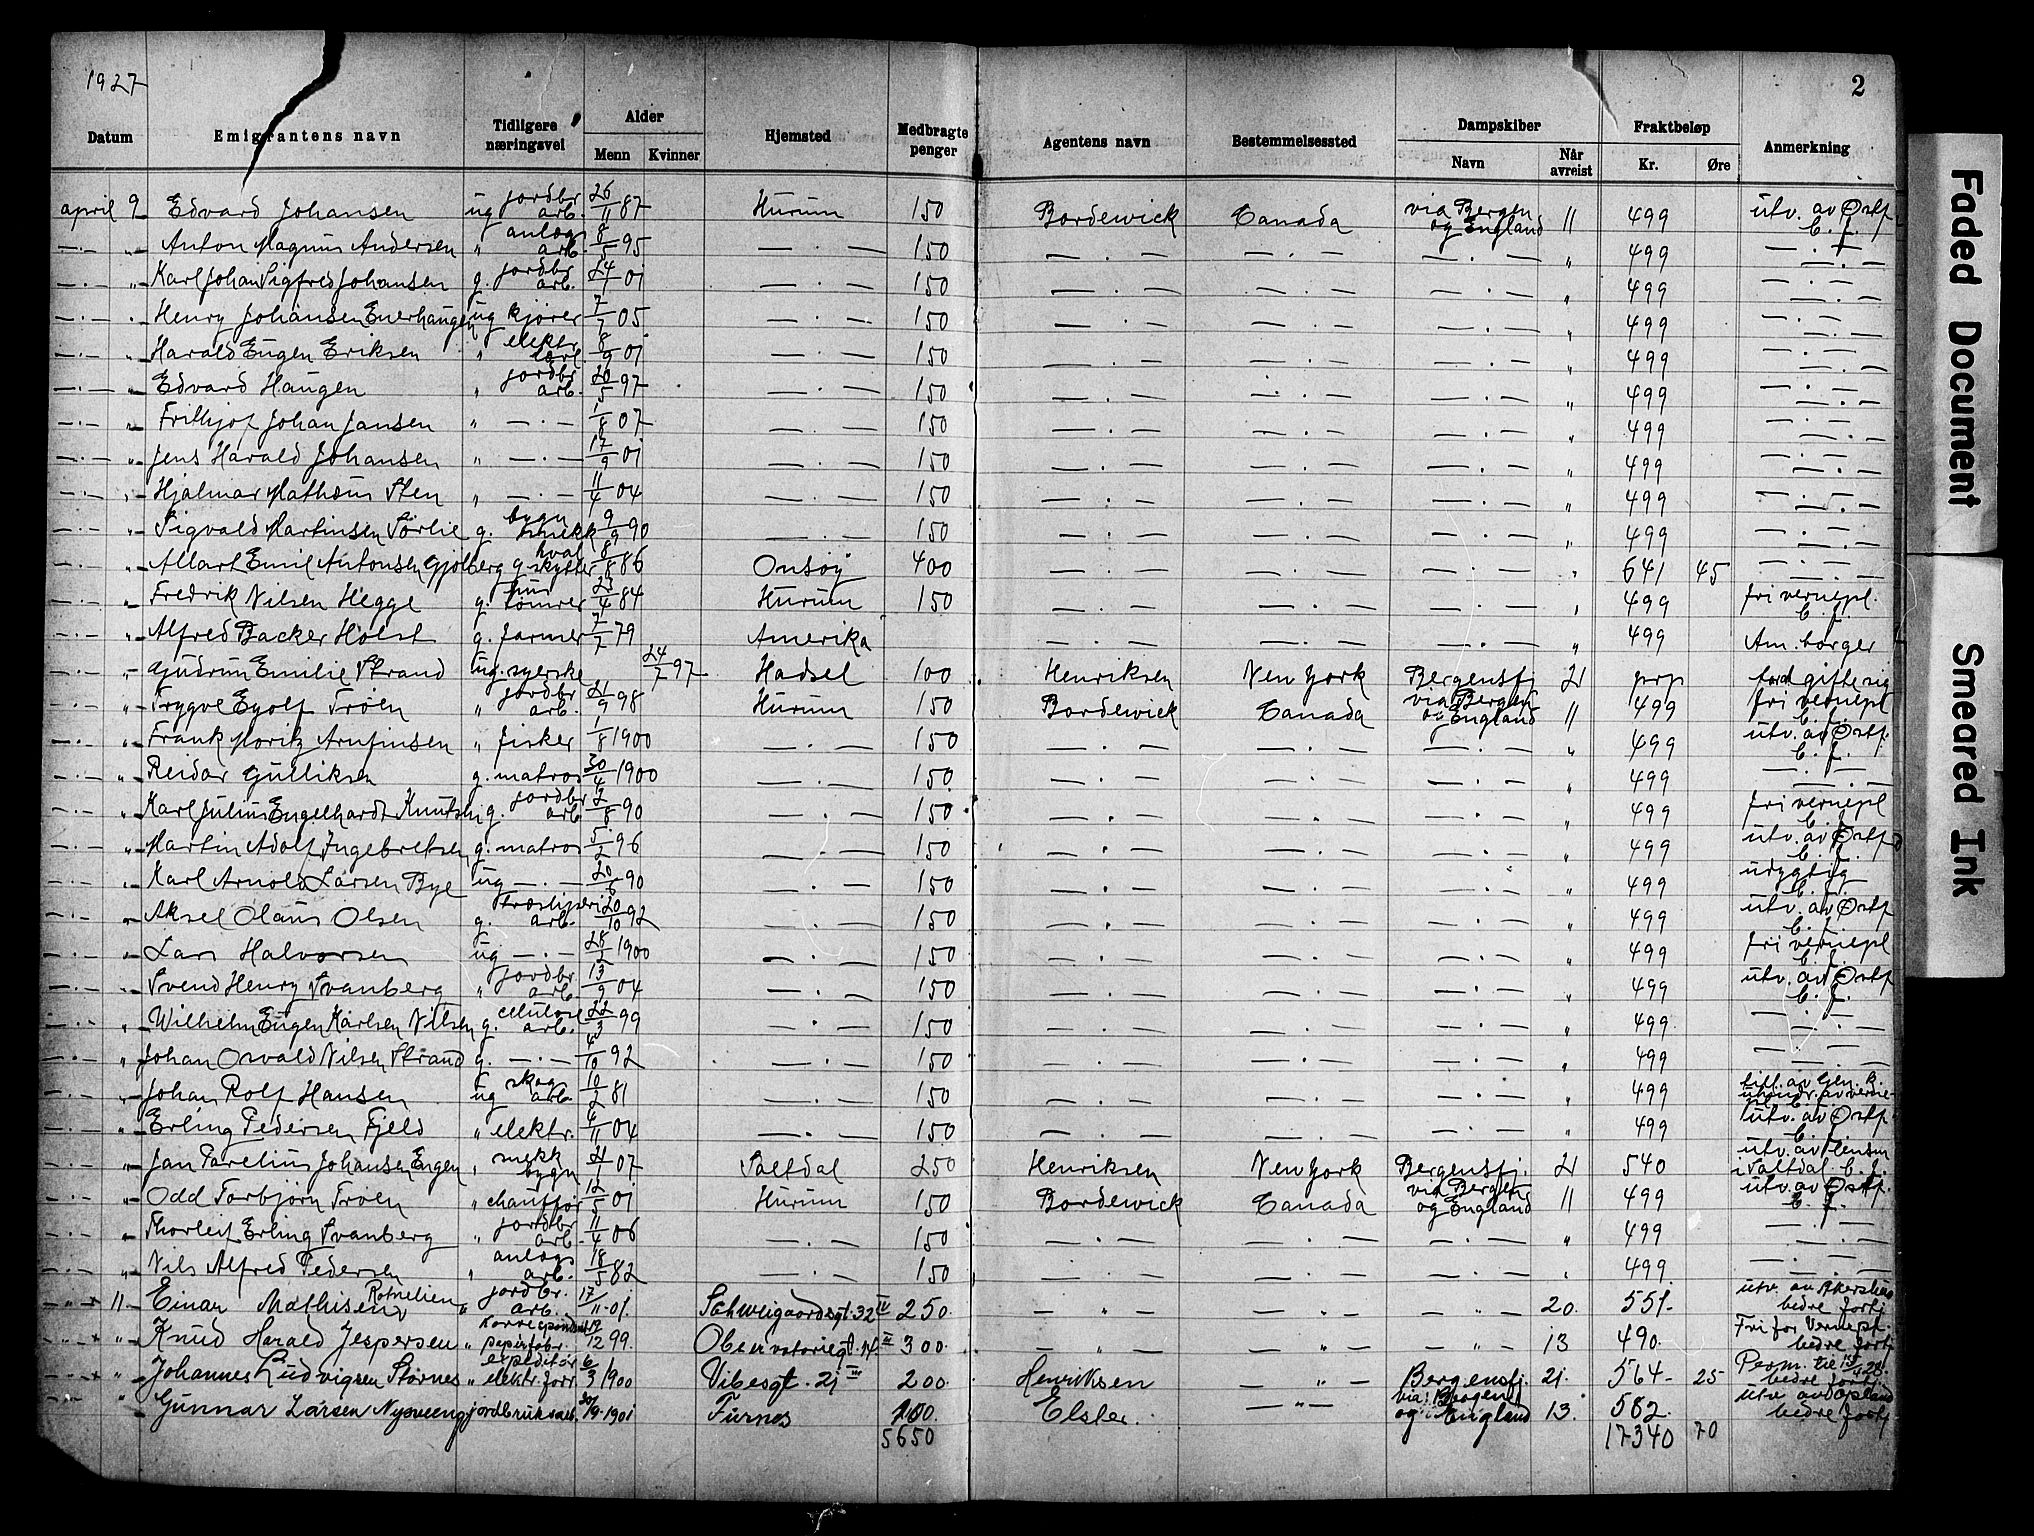 1927
2
Datum Emigrantens navn Tidligere næringsvei Alder Menn Kvinner Hjemsted Medbragte penger Agentens navn Bestemmelsessted Dampskiber Navn Når avreist Fraktbeløp Kr. Øre Anmerkning
april 9 Edvard Johansen ug jordbr. arb. 26/11 87 Hurum 150 Bordewick Canada via Bergen og England 11 499 utv. av Østf. b. f.
—.— „ Anton Magnus Andersen „ anlægs arb. 8/5 95 —.— 150 —.— —.— —.— „ 499 —.—
—.— „ Karl Johan Sigfred Johansen g. jordbr. arb. 24/1 01 —.— 150 —.— —.— —.— „ 499 —.—
—.— „ Henry Johansen Enerhaugen ug kjører 7/7 05 —.— 150 —.— —.— —.— „ 499 —.—
—.— „ Harald Eugen Eriksen „ elektr. lærl. 8/9 01 —.— 150 —.— —.— —.— „ 499 —.—
—.— „ Edvard Haugen „ jordbr. arb. 20/5 97 —.— 150 —.— —.— —.— „ 499 —.—
—.— „ Frithjof Johan Jansen „ —.— 1/8 07 —.— 150 —.— —.— —.— „ 499 —.—
—.— „ Jens Harald Johansen „ —.— 17/9 01 —.— 150 —.— —.— —.— „ 499 —.—
—.— „ Hjalmar Mathæus Sten „ —.— 11/4 04 —.— 150 —.— —.— —.— „ 499 —.—
—.— „ Sigvald Martinsen Sørlie g. bygn. snekk 9/9 90 —.— 150 —.— —.— —.— „ 499 —.—
—.— „ Allart Emil Antonsen Gjølberg g. hval skytter 8/8 86 Onsøy 400 —.— —.— —.— „ 641 45 —.—
—.— „ Fredrik Nilsen Hegge g. hus tømrer 23/4 84 Hurum 150 —.— —.— —.— „ 499 fri vernepl. b. f.
—.— „ Alfred Backer Holst g. farmer 7/7 79 Amerika —.— —.— —.— „ 499 Am. borger
—.— „ Gudrun Emilie Strand ug. syerske 24/7 97 Hadsel 100 Henriksen New York Bergensfj 21 prp gifte sig
—.— „ Trygve Eyolf Trøen „ jordbr. arb. 21/9 98 Hurum 150 Bordewick Canada via Bergen og England 11 499 fri vernepl b. f.
—.— „ Frank Moritz Arnfinsen „ fisker 1/8 1900 —.— 150 —.— —.— —.— „ 499 utv. av Østf. b. f.
—.— „ Reidar Gulliksen g. matros 30/4 1900 —.— 150 —.— —.— —.— „ 499 —.—
—.— „ Karl Julius Engelhardt Knutsen g. jordbr. arb 2/8 90 —.— 150 —.— —.— —.— „ 499 fri vernepl b. f.
—.— „ Martin Adolf Ingebretsen g. matros 5/2 96 —.— 150 —.— —.— —.— „ 499 utv. av Østfd b. f.
—.— „ Karl Arnold Larsen Bye ug —.— 20/6 90 —.— 150 —.— —.— —.— „ 499 udygtig b. f.
—.— „ Aksel Olaus Olsen g. træsliperi arb. 20/10 92 —.— 150 —.— —.— —.— „ 499 utv. av Østf b. f.
—.— „ Lars Halvorsen ug —.— 1900 —.— 150 —.— —.— —.— „ 499 fri vernepl b. f.
—.— „ Svend Henry Svanberg „ jordbr. arb. 13/9 04 —.— 150 —.— —.— —.— „ 499 utv. av Østf b. f.
—.— „ Wilhelm Eugen Karlsen Nilsen g. celulose arb. 22/3 99 —.— 150 —.— —.— —.— „ 499 —.—
—.— „ Johan Osvald Nilsen Strand g. —.— 4/10 92 —.— 150 —.— —.— —.— „ 499 —.—
—.— „ Johan Rolf Hansen ug skog arb. 10/2 81 —.— 150 —.— —.— —.— „ 499
—.— „ Erling Pedersen Fjeld „ elektr. 4/11 04 —.— 150 —.— —.— —.— „ 499 utv. av Østf b. f.
—.— „ Jan Parelius Johansen Engen „ snekk bygn 21/1 07 Saltdal 250 Henriksen New York Bergensfj. 21 540 utv. av lensm i Saltdal b. f.
—.— „ Odd Torbjørn Trøen „ chauffør 12/5 01 Hurum 150 Bordewick Canada via Bergen og England 11 499 utv. av Østf. b. f.
—.— „ Thorleif Erling Svanberg „ jordbr arb. 11/4 06 —.— 150 —.— —.— —.— „ 499 —.—
—.— „ Nils Alfred Pedersen „ anlægs arb. 18/5 82 —.— 150 —.— —.— —.— „ 499 —.—
—„— 11. Einar Mathisen „ jordbr. arb. 17/11-01. Schweigaardsgt. 32 IV 250. —„— —„— —„— 20. 551. utv. av Akershus bedre fortj
—„— „ Knud Harald Jespersen „ 12 99. Observatoriegt. 14 II 300. —„— —„— —„— 13 490. Fri for Vernepl. bedre fortj
—„— „ Johannes Ludvigsen Størnes „ expeditør elektr. forr. 6/3 1900 Vibesgt. 21 III 200 Henriksen —„— Bergensfj. 21. 564 25 Perm. til bedre fortj
—„— „ Gunnar Larsen Nysveen jordbruksarb. 1901 Furnes 100. Elster. —„— via Bergen og England 13. 582. utv av Opland bedre fortj
5650 17340 70
Faded Document
Smeared Ink